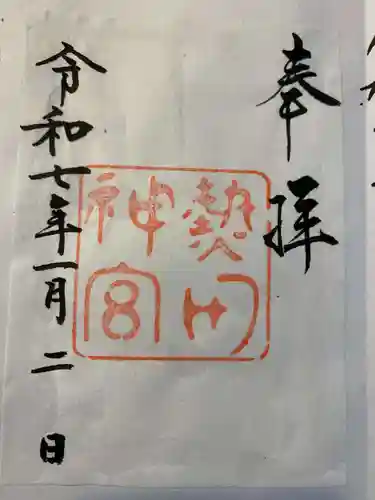 奉拝
熱田
神宮
令和七年一月二日